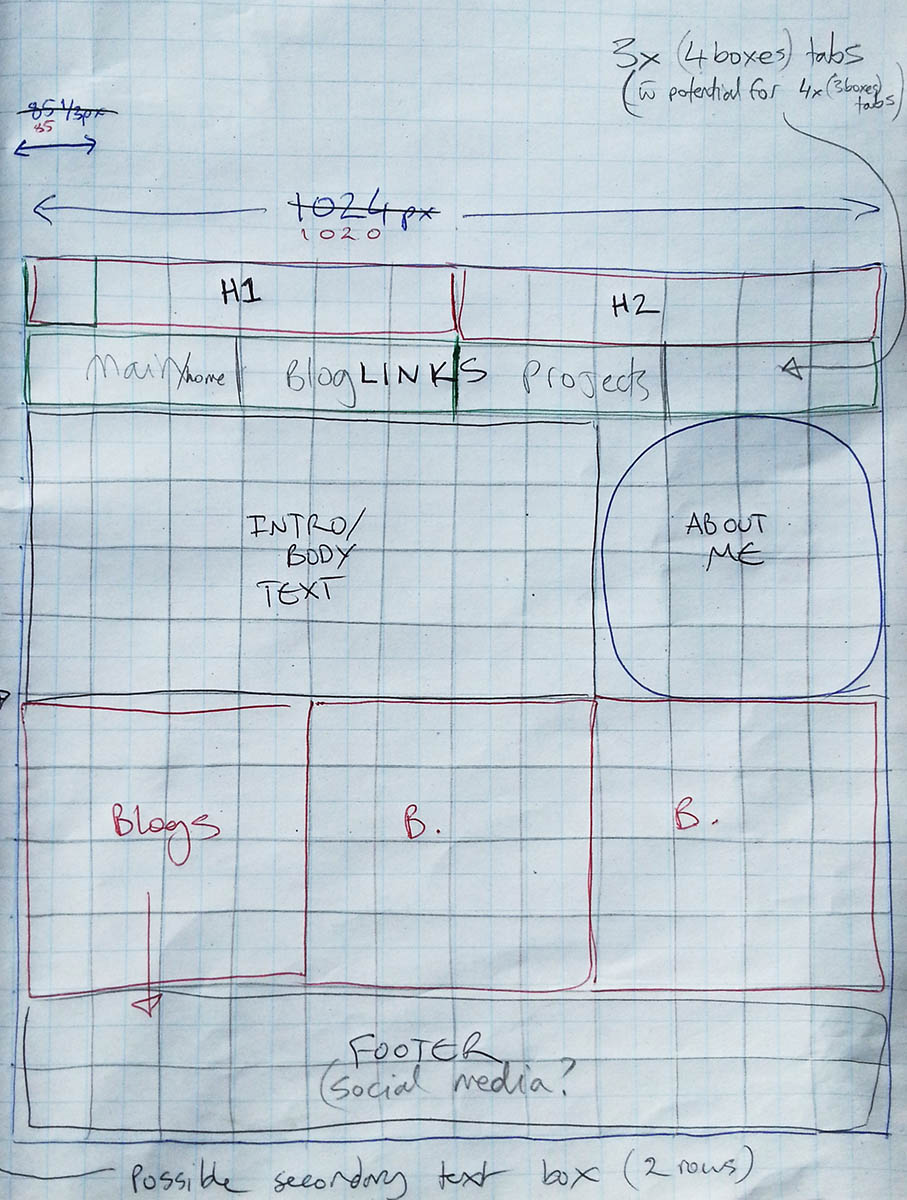 3x (4 boxes) tabs
(w̄ potential for 4x (3 boxes)
tabs)
85 1/3px
85
1024px
1020
H1
H2
Main/home
Blog
LINKS
Projects
INTRO/
BODY
TEXT
ABOUT
ME
Blogs
B.
B.
FOOTER
(social media?
Possible secondary text box (2 rows)